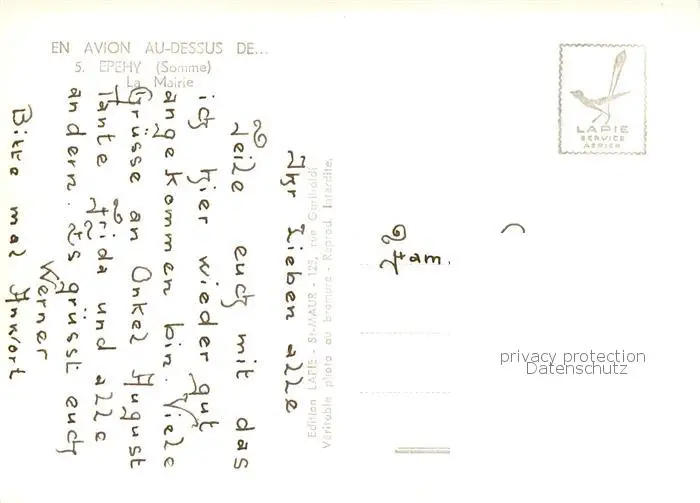 EN AVION AU-DESSUS DE...
5. EPEHY (Somme)
La Mairie
Ihr Lieben alle
Zeile euch mit das
ich hier wieder gut
angekommen bin. Viele
Grüsse an Onkel August
Tante Frida und alle
andern. Es grüsst euch
Werner
Bitte mal Anwort
Edition LAPIE - St-MAUR - 123, rue Garibaldi
Véritable photo au bromure - Reprod. Interdite.
LAPIE
SERVICE
AERIEN
Fam.
privacy protection
Datenschutz